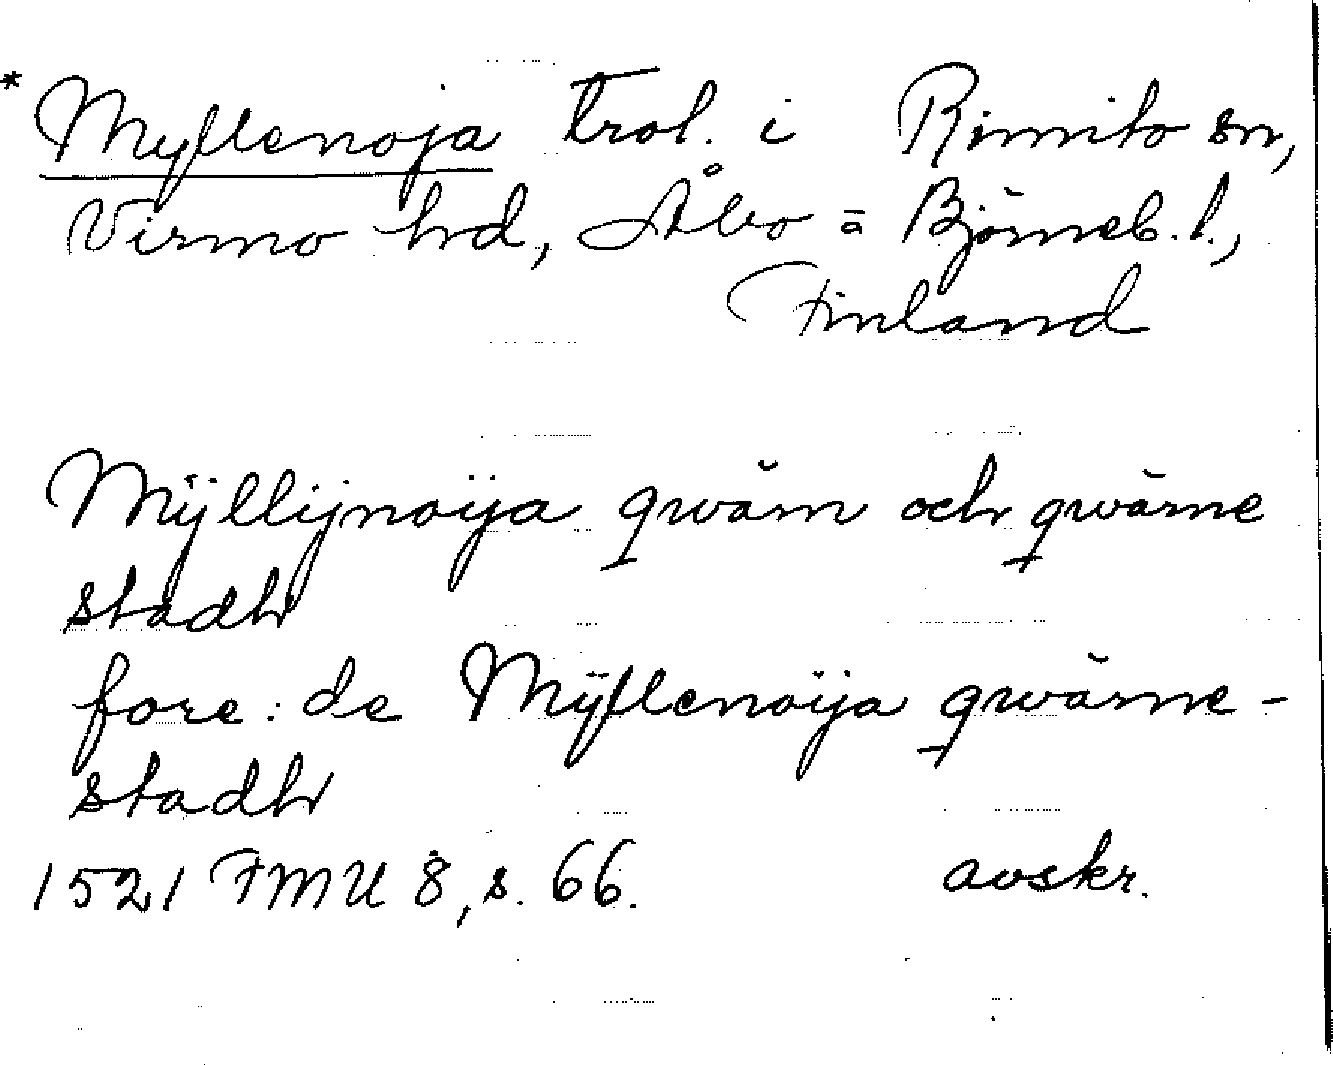 * Myllenoja trol. i Rimito sn,
Virmo hd, Åbo = Björneb. l.,
Finland
Mÿllijnoija qwärn och qwärne
stadh
fore: de Mÿllenoija qwärne-
stadh
1521 FMU 8, s. 66. avskr.